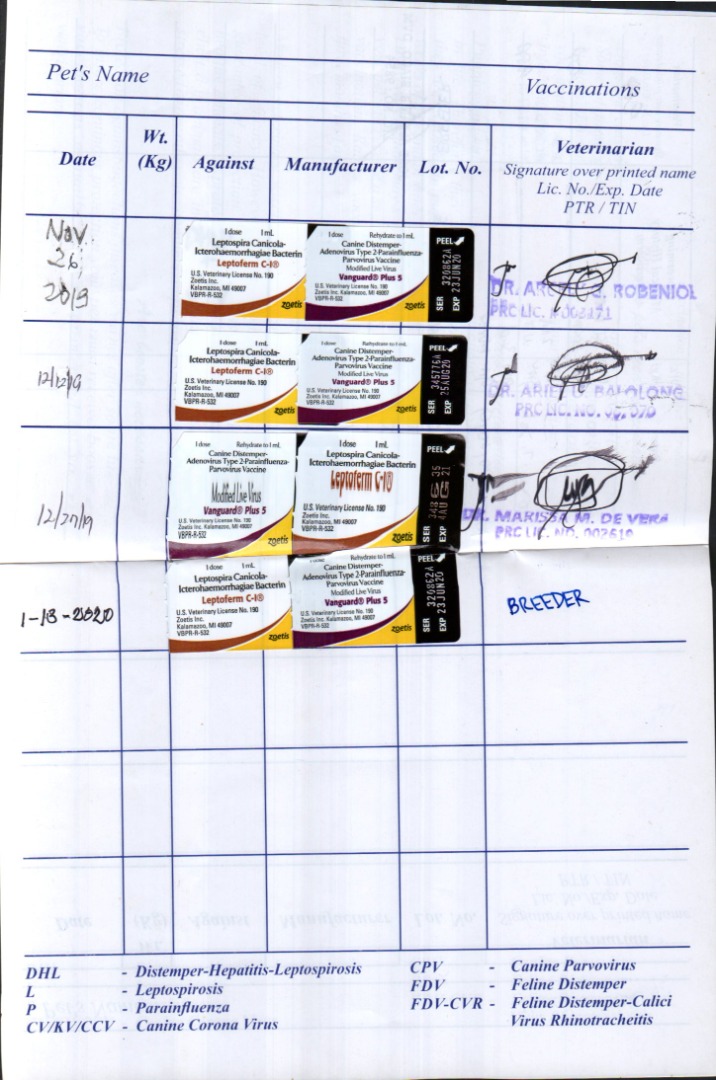 Pet's Name Vaccinations
Date Wt. (Kg) Against Manufacturer Lot. No. Veterinarian
Signature over printed name
Lic. No./Exp. Date
PTR / TIN
Nov. 26, 2019
1 dose 1 mL
Leptospira Canicola-
Icterohaemorrhagiae Bacterin
Leptoferm C-I®
U.S. Veterinary License No. 190
Zoetis Inc.
Kalamazoo, MI 49007
VBPR-R-532
zoetis
1 dose Rehydrate to 1 mL
Canine Distemper-
Adenovirus Type 2-Parainfluenza-
Parvovirus Vaccine
Modified Live Virus
Vanguard® Plus 5
U.S. Veterinary License No. 190
Zoetis Inc. Kalamazoo, MI 49007
VBPR-R-532
zoetis
PEEL
SER 320862A
EXP 23JUN20
DR. ROBENIOL
PRC LIC.
12/12/19
1 dose 1 mL
Leptospira Canicola-
Icterohaemorrhagiae Bacterin
Leptoferm C-I®
U.S. Veterinary License No. 190
Zoetis Inc.
Kalamazoo, MI 49007
VBPR-R-532
zoetis
1 dose Rehydrate to 1 mL
Canine Distemper-
Adenovirus Type 2-Parainfluenza-
Parvovirus Vaccine
Modified Live Virus
Vanguard® Plus 5
U.S. Veterinary License No. 190
Zoetis Inc. Kalamazoo, MI 49007
VBPR-R-532
zoetis
PEEL
SER 345776A
EXP 25AUG20
DR. ARIEL
PRC LIC. NO.
12/27/19
1 dose Rehydrate to 1 mL
Canine Distemper-
Adenovirus Type 2-Parainfluenza-
Parvovirus Vaccine
Modified Live Virus
Vanguard® Plus 5
U.S. Veterinary License No. 190
Zoetis Inc. Kalamazoo, MI 49007
VBPR-R-532
zoetis
1 dose 1 mL
Leptospira Canicola-
Icterohaemorrhagiae Bacterin
Leptoferm C-I®
U.S. Veterinary License No. 190
Zoetis Inc.
Kalamazoo, MI 49007
VBPR-R-532
zoetis
PEEL
SER
EXP
DR. MARISSA M. DE VERA
PRC LIC. NO.
1-13-2020
1 dose 1 mL
Leptospira Canicola-
Icterohaemorrhagiae Bacterin
Leptoferm C-I®
U.S. Veterinary License No. 190
Zoetis Inc.
Kalamazoo, MI 49007
VBPR-R-532
zoetis
Rehydrate to 1 mL
Canine Distemper-
Adenovirus Type 2-Parainfluenza-
Parvovirus Vaccine
Modified Live Virus
Vanguard® Plus 5
U.S. Veterinary License No. 190
Zoetis Inc. Kalamazoo, MI 49007
VBPR-R-532
zoetis
PEEL
SER 320862A
EXP 23JUN20
BREEDER
DHL - Distemper-Hepatitis-Leptospirosis
L - Leptospirosis
P - Parainfluenza
CV/KV/CCV - Canine Corona Virus
CPV - Canine Parvovirus
FDV - Feline Distemper
FDV-CVR - Feline Distemper-Calici
Virus Rhinotracheitis